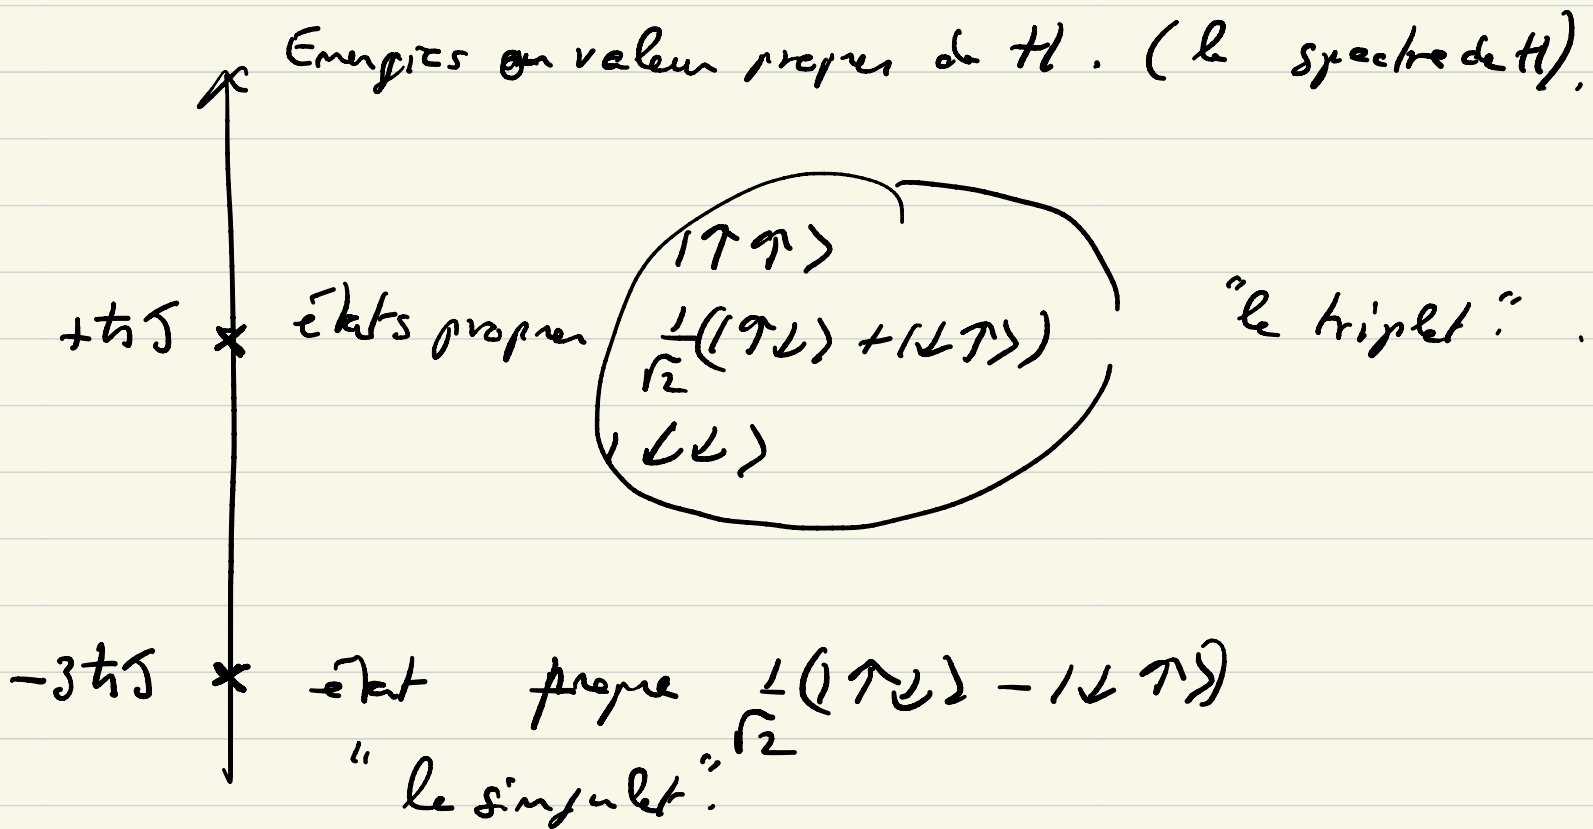 Energies ou valeurs propres de H. (le spectre de H).
|↑↑⟩
+ħJ états propres 1/√2(|↑↓⟩ + |↓↑⟩) "le triplet".
|↓↓⟩
-3ħJ état propre 1/√2(|↑↓⟩ - |↓↑⟩)
"le singulet".